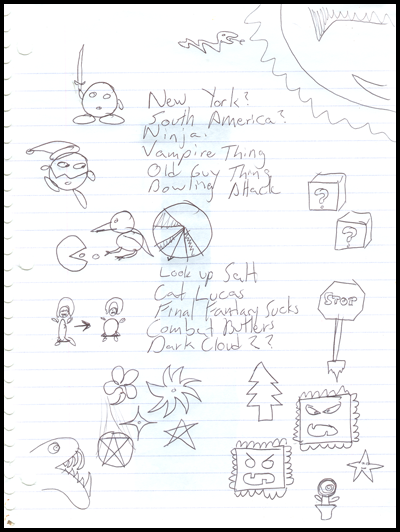 New York?
South America?
Ninja.
Vampire Thing
Old Guy Thing
Bowling Attack
?
?
Look up Salt
Cat Lucas
Final Fantasy Sucks
STOP
Combat Butlers
Dark Cloud 2?